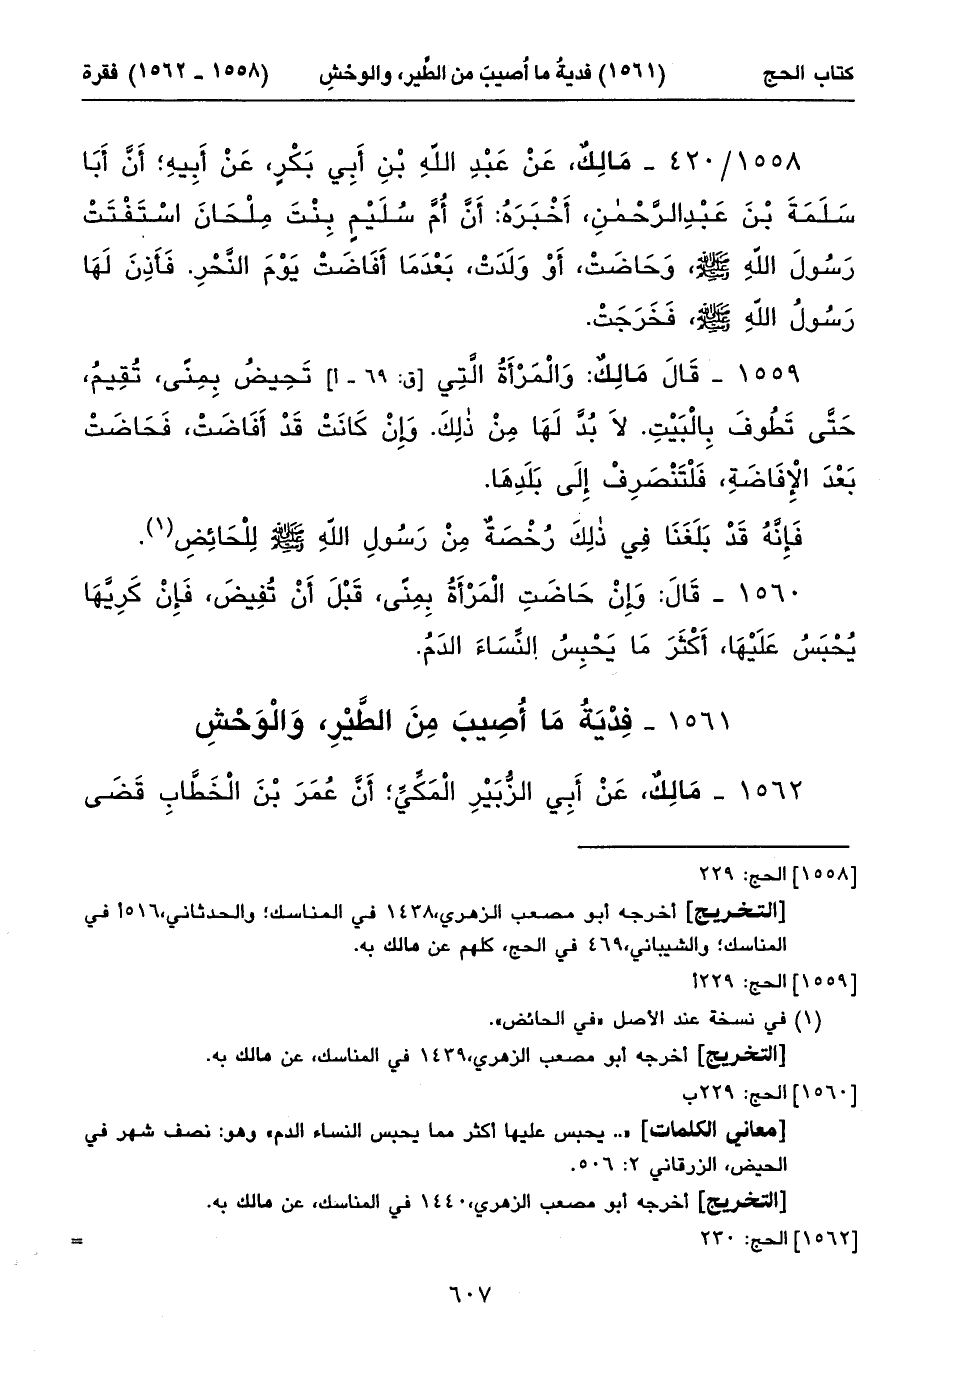 كتاب الحج (١٥٦١) فديةُ ما أصيبَ من الطَّير، والوحْشِ (١٥٥٨ ـ ١٥٦٢) فقرة
٤٢٠/١٥٥٨ ـ مَالِكٌ، عَنْ عَبْدِ اللّهِ بْنِ أَبِي بَكْرٍ، عَنْ أَبِيهِ؛ أَنَّ أَبَا
سَلَمَةَ بْنَ عَبْدِالرَّحْمٰنِ، أَخْبَرَهُ: أَنَّ أُمَّ سُلَيْمٍ بِنْتَ مِلْحَانَ اسْتَفْتَتْ
رَسُولَ اللّهِ ﷺ، وَحَاضَتْ، أَوْ وَلَدَتْ، بَعْدَمَا أَفَاضَتْ يَوْمَ النَّحْرِ. فَأَذِنَ لَهَا
رَسُولُ اللّهِ ﷺ، فَخَرَجَتْ.
١٥٥٩ ـ قَالَ مَالِكٌ: وَالْمَرْأَةُ الَّتِي [ق: ٦٩ ـ ا] تَحِيضُ بِمِنًى، تُقِيمُ،
حَتَّى تَطُوفَ بِالْبَيْتِ. لاَ بُدَّ لَهَا مِنْ ذٰلِكَ. وَإِنْ كَانَتْ قَدْ أَفَاضَتْ، فَحَاضَتْ
بَعْدَ الْإِفَاضَةِ، فَلْتَنْصَرِفْ إِلَى بَلَدِهَا.
فَإِنَّهُ قَدْ بَلَغَنَا فِي ذٰلِكَ رُخْصَةٌ مِنْ رَسُولِ اللّهِ ﷺ لِلْحَائِضِ(١).
١٥٦٠ ـ قَالَ: وَإِنْ حَاضَتِ الْمَرْأَةُ بِمِنًى، قَبْلَ أَنْ تُفِيضَ، فَإِنْ كَرِيَّهَا
يُحْبَسُ عَلَيْهَا، أَكْثَرَ مَا يَحْبِسُ النِّسَاءَ الدَمُ.
١٥٦١ ـ فِدْيَةُ مَا أُصِيبَ مِنَ الطَّيْرِ، وَالْوَحْشِ
١٥٦٢ ـ مَالِكٌ، عَنْ أَبِي الزُّبَيْرِ الْمَكِّيِّ؛ أَنَّ عُمَرَ بْنَ الْخَطَّابِ قَضَى
[١٥٥٨] الحج: ٢٢٩
[التخريج] أخرجه أبو مصعب الزهري،١٤٣٨ في المناسك؛ والحدثاني،٥١٦أ في
المناسك؛ والشيباني،٤٦٩ في الحج، كلهم عن مالك به.
[١٥٥٩] الحج: ٢٢٩أ
(١) في نسخة عند الأصل «في الحائض».
[التخريج] أخرجه أبو مصعب الزهري،١٤٣٩ في المناسك، عن مالك به.
[١٥٦٠] الحج: ٢٢٩ب
[معاني الكلمات] «.. يحبس عليها أكثر مما يحبس النساء الدم» وهو: نصف شهر في
الحيض، الزرقاني ٢: ٥٠٦.
[التخريج] أخرجه أبو مصعب الزهري،١٤٤٠ في المناسك، عن مالك به.
[١٥٦٢] الحج: ٢٣٠ =
٦٠٧